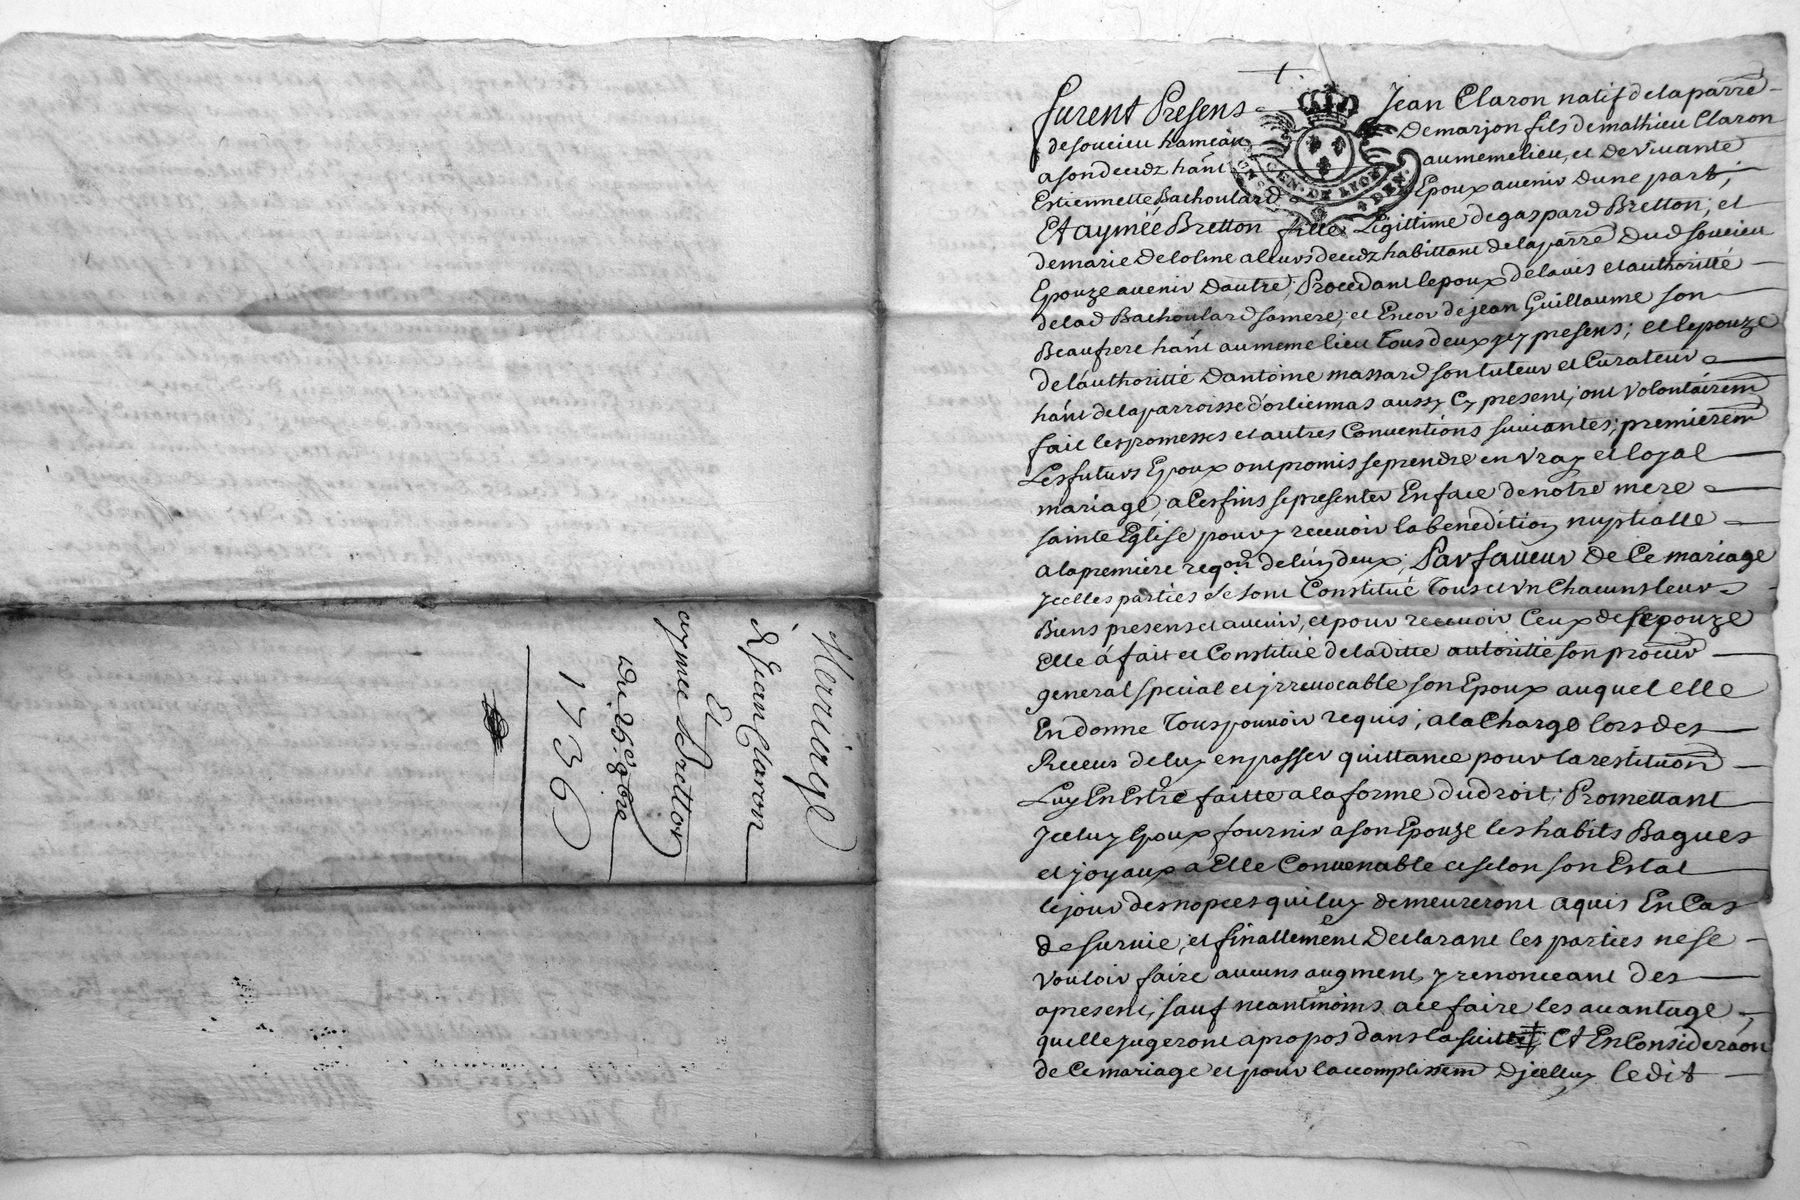 Mariage
De Jean Claron
Et
aymée Bretton
Du 26e 9bre
1736
furent Presens Jean Claron natif de la parre
de soucieu hameau De marjon fils de mathieu Claron
a son decedz hânt au meme lieu, et De vivante
Estiennette Bachoulard Epoux avenir dune part;
Et aymée Bretton fille Legittime de gaspard Bretton; et
de marie Delolme a leurs decedz habittant de la parre Dud soucieu
Epouze avenir dautre; Procedant lepoux de lavis et authoritté
de lad Bachoulard sa mere; et Encor de jean Guillaume son
Beaufrere hânt au meme lieu Tous deux icy presens; et lepouze
de lauthoritté Dantoine massard son tuteur et Curateur
hânt de la parroisse d'orliennas aussy Cy present; ont volontairem
fait les promesses et autres Conventions suivantes; premierem
Les futurs Epoux ont promis se prendre en vray et loyal
mariage, a Ces fins se presenter En face de notre mere
sainte Eglise pour y recevoir la benediction nuptialle
a la premiere reqon de luy deux; Par faveur de Ce mariage
Jcelles parties se sont Constitué Tous et vn Chacuns leurs
Biens presens et avenir, et pour recevoir Ceux de lepouze
Elle à fait et Constitué de laditte autoritté son procur
general special et jrrevocable son Epoux auquel elle
En donne Tous pouvoir requis; a la Charge lors des
Receus de luy en passer quittance pour la restituon
Luy En Estre faitte a la forme du droit; Promettant
Jceluy Epoux fournir a son Epouze les habits Bagues
et joyaux a Elle Convenable et selon son Estat
le jour des nopces qui luy demeureront aquis En Cas
de survie; et finallement Declarant les parties ne se
vouloir faire aucuns augment, y renonceant des
apresent, sauf neantmoins a ce faire les avantage
quelle jugeront a propos dans la suitte Et En Consideraon
de Ce mariage et pour laccomplissem D'jcelluy ledit
GEN. DE LYON
4 DEN.